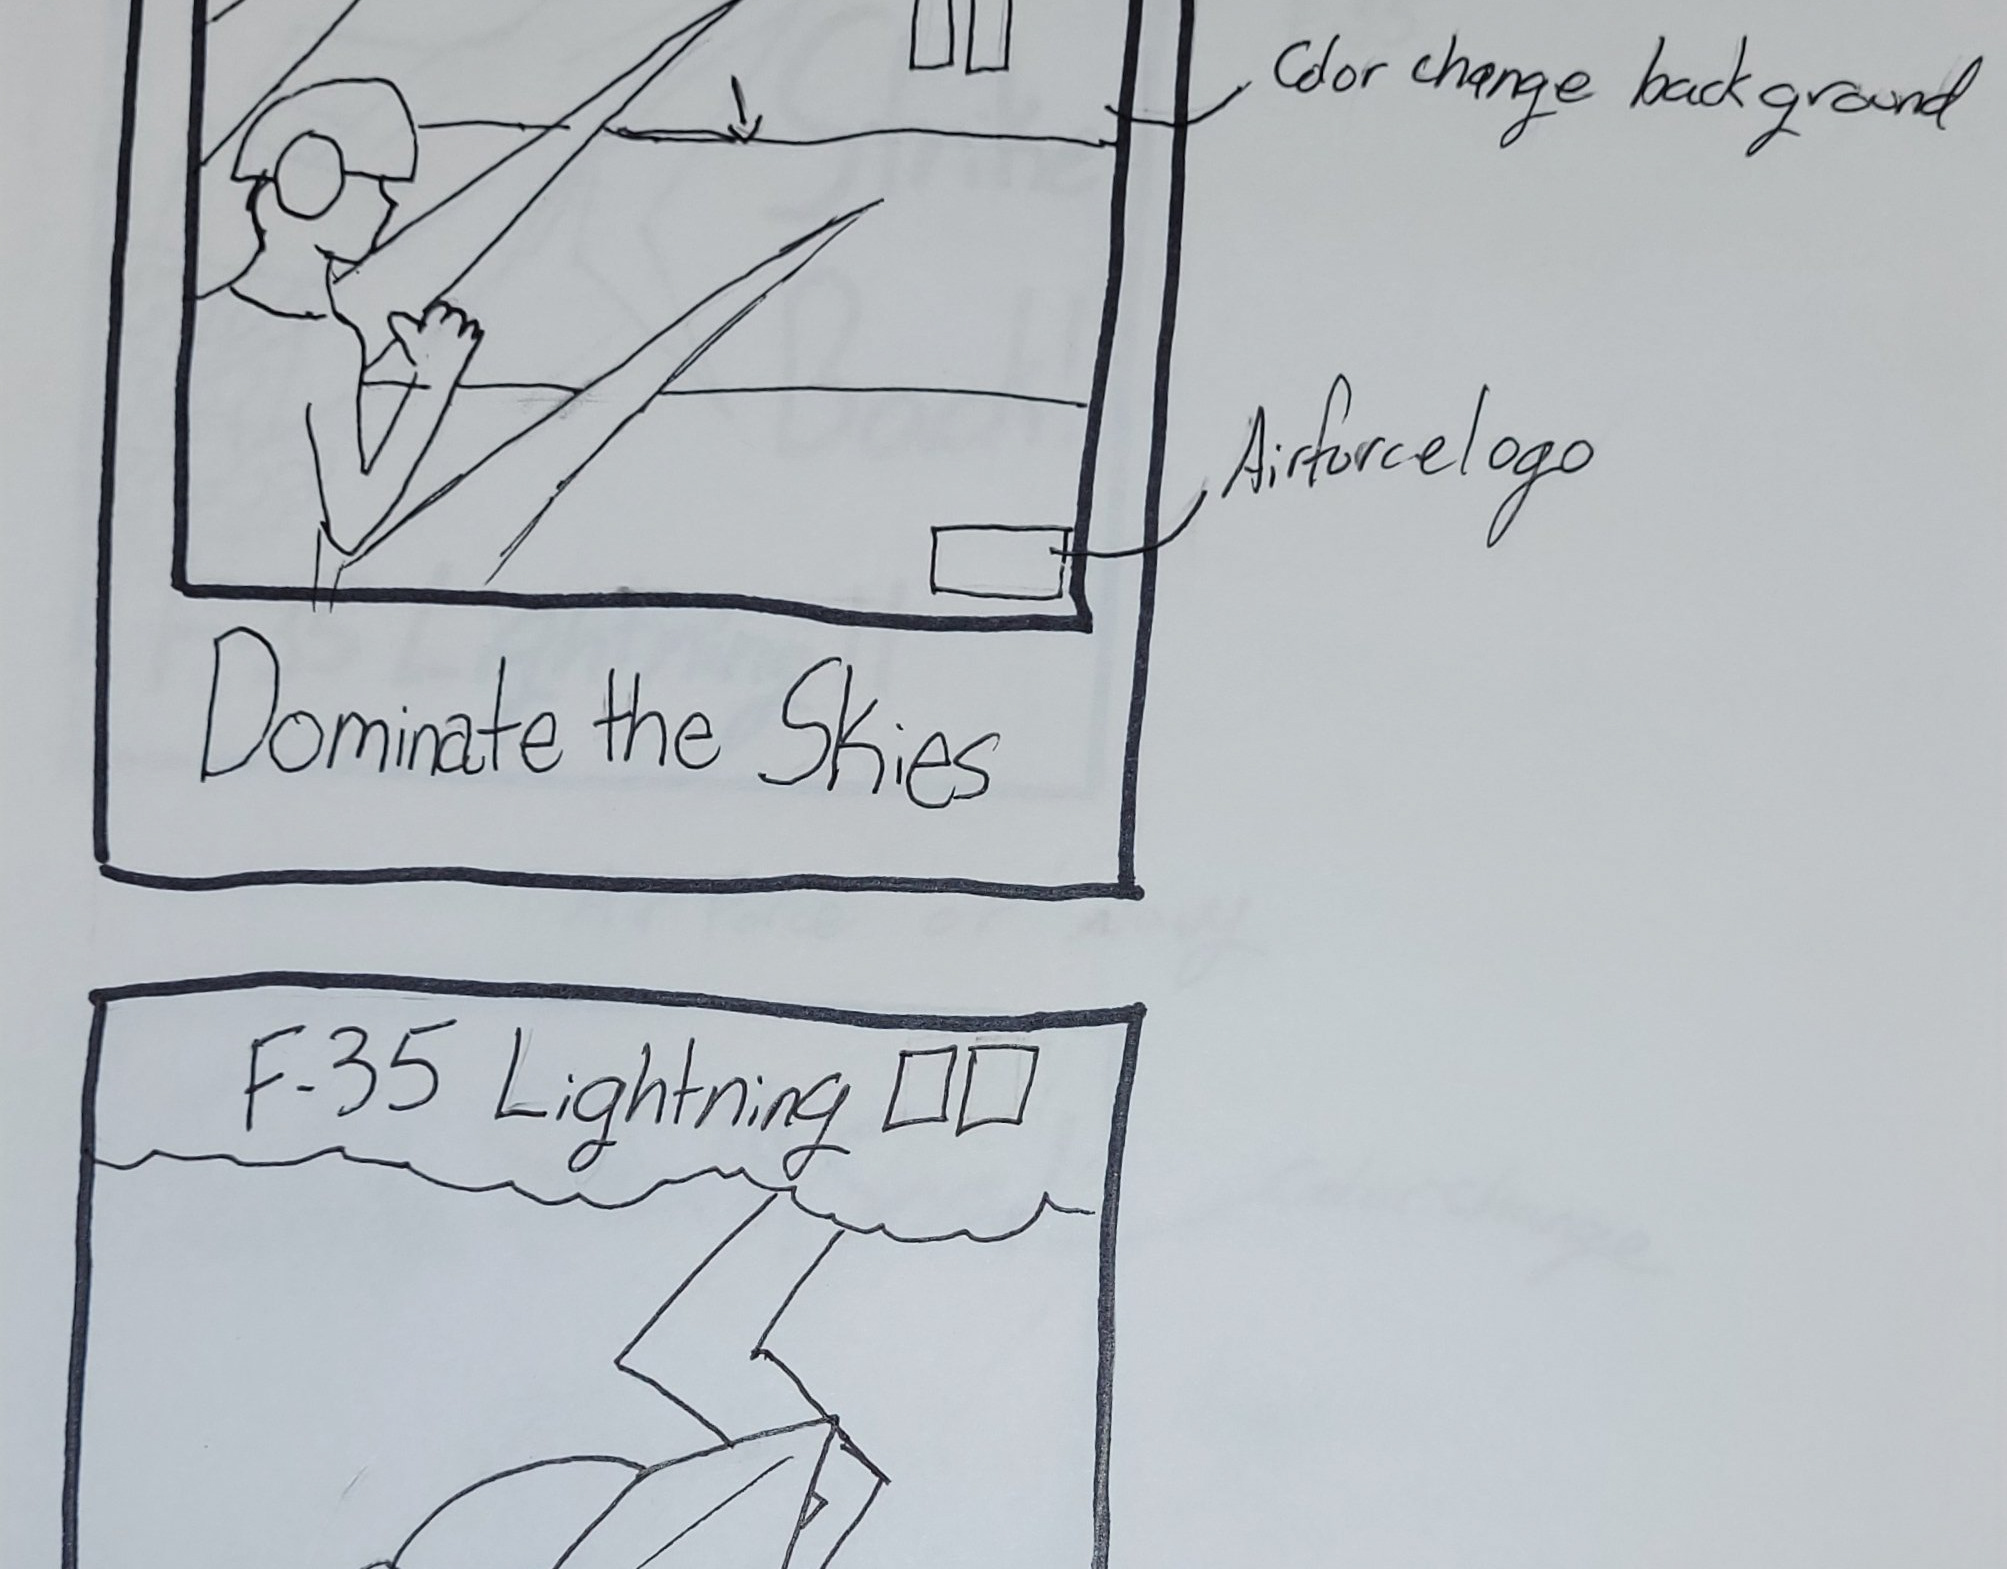 Color change background
Airforce logo
Dominate the Skies
F-35 Lightning